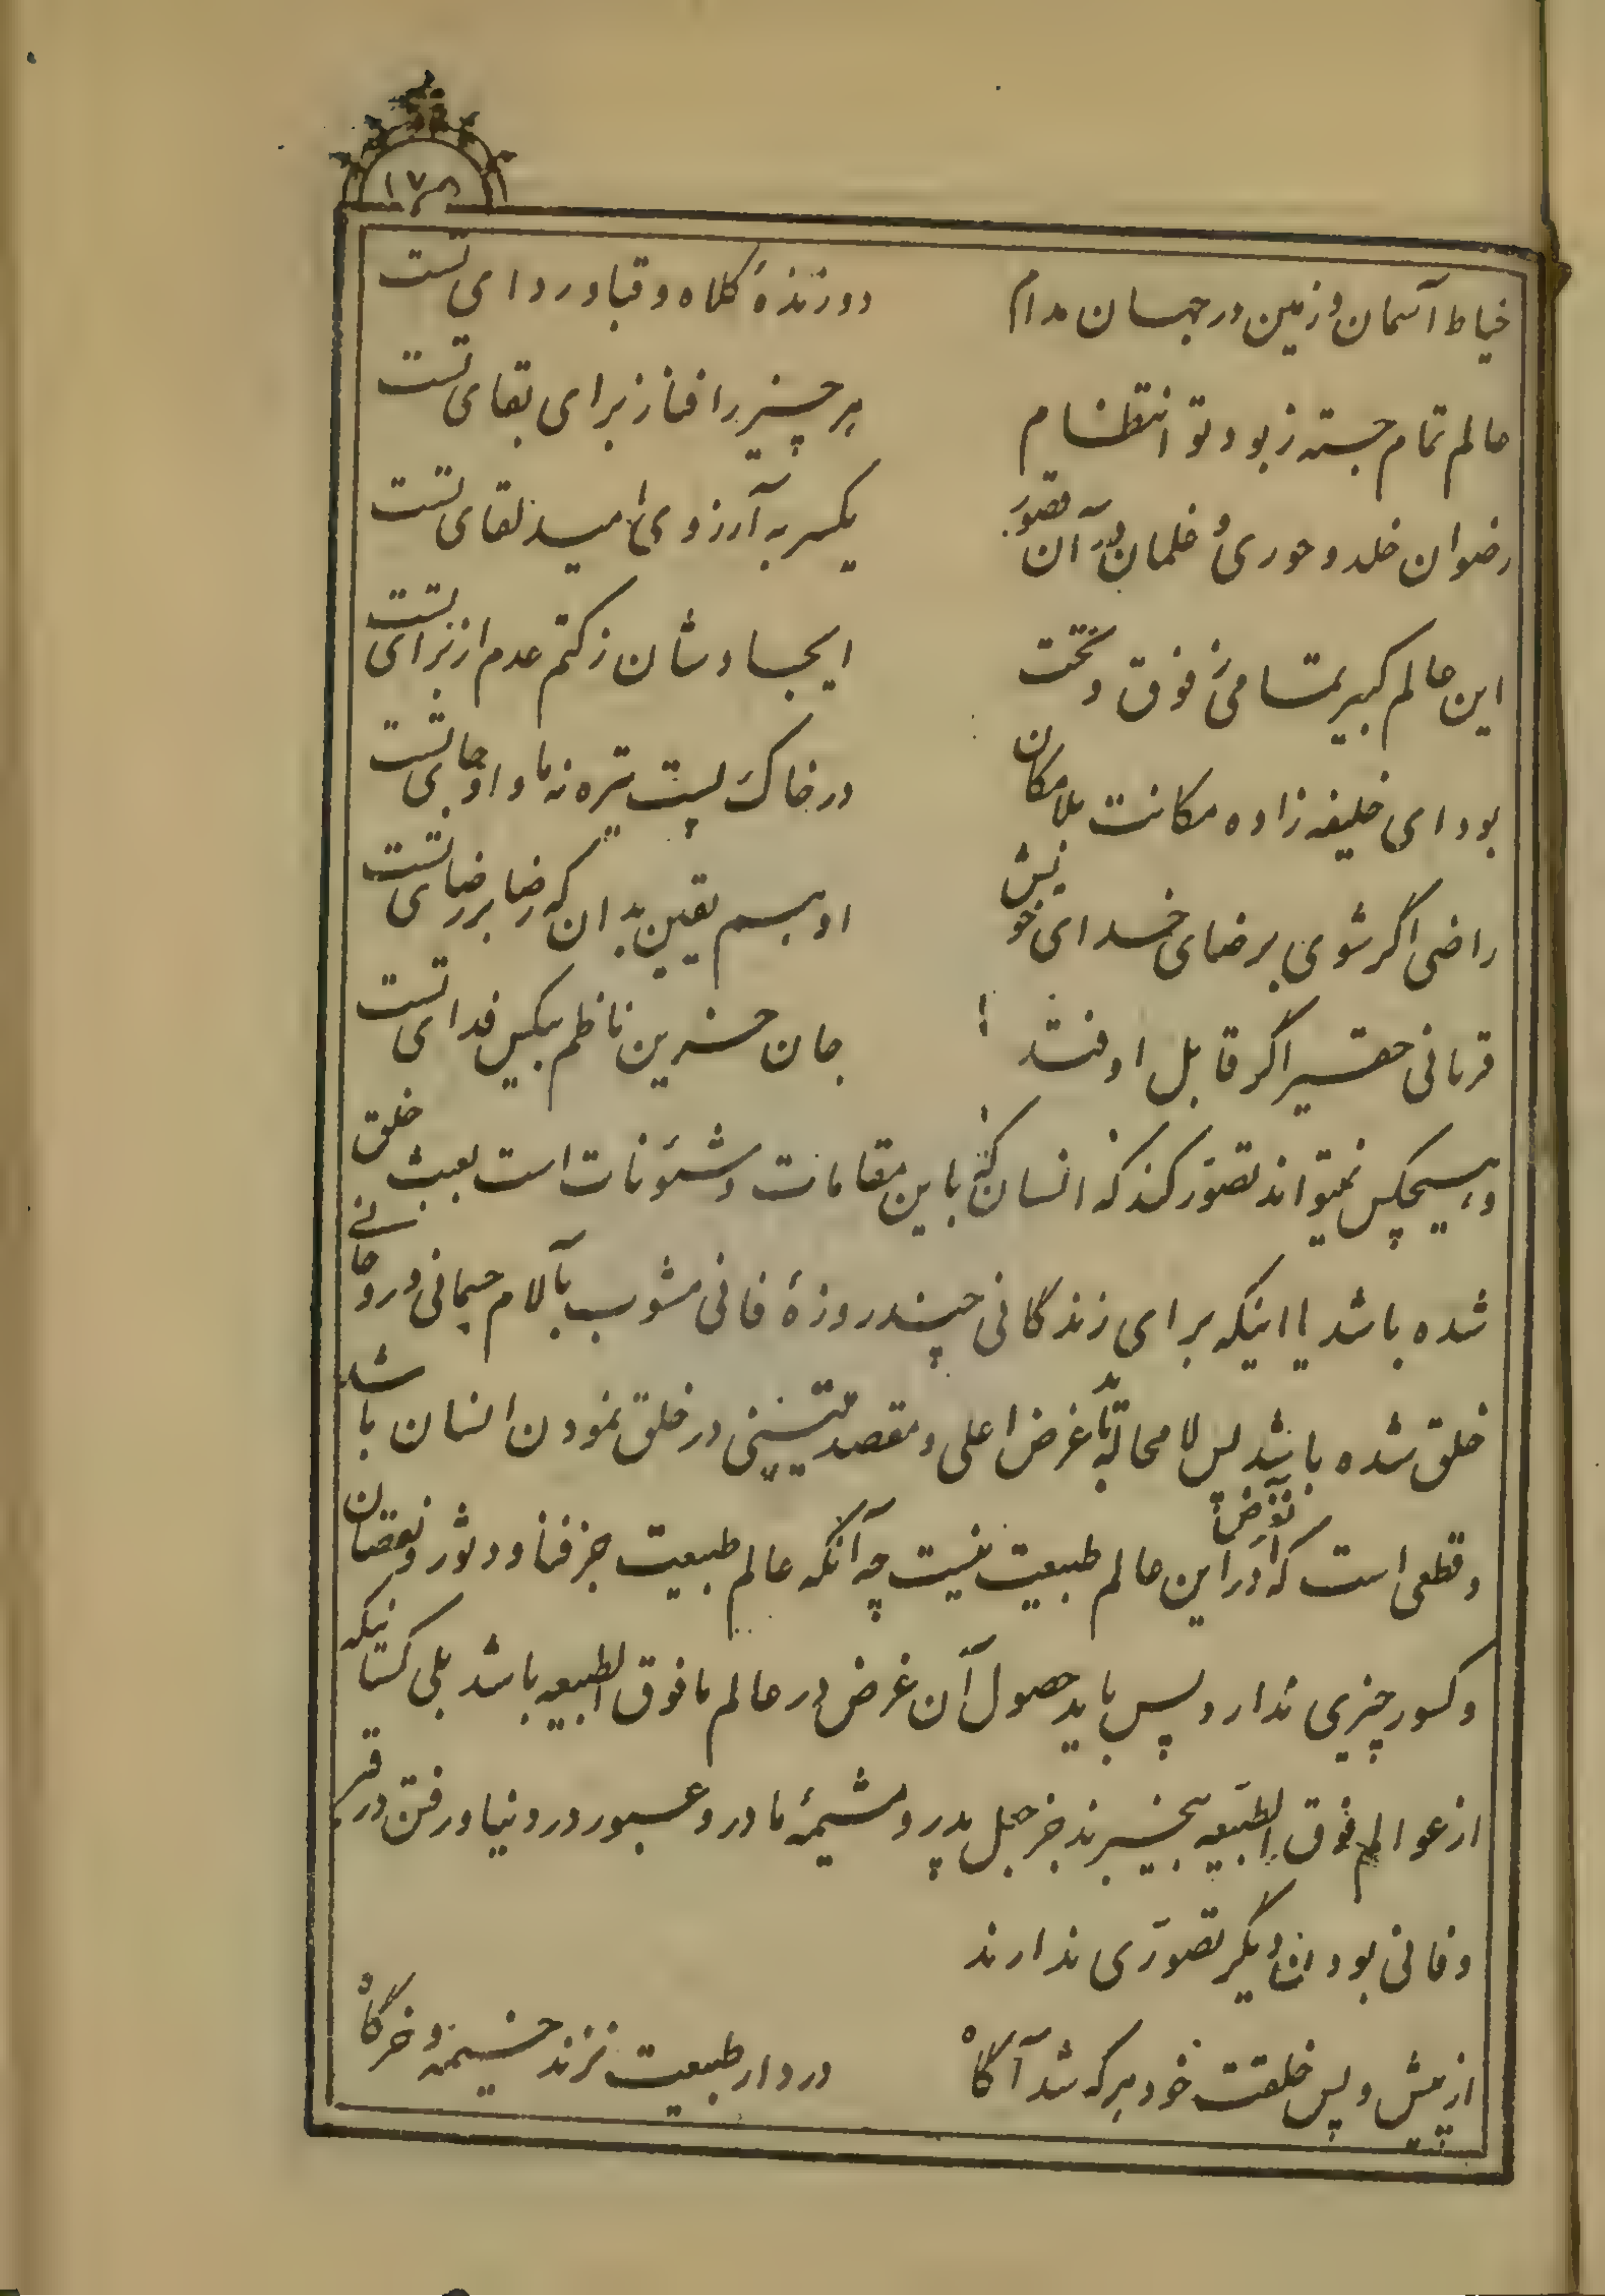 ۱۷۸
خیاط آسمان و زمین در جهان مدام دوزندهٔ کلاه و قبا و ردای تست
عالم تمام جسته ز بود تو انتظام هر چیز را فنا ز برای بقای تست
رضوان خلد و حوری و غلمان در آن قصور یکسر به آرزوی امید لقای تست
این عالم کبیر تمامی ز فوق و تحت ایجادشان ز کتم عدم از برای تست
بود ای خلیفه زاده مکانت بلامکان در خاک پست تیره نه ماوا و جای تست
راضی اگر شوی برضای خدای خویش او هم یقین بدان که رضا بر رضای تست
قربانی حقیر اگر قابل اوفتد جان حزین ناظم بیکس فدای تست
و هیچکس نمیتواند تصوّر کند که انسان که باین مقامات و شئونات است بعبث خلق
شده باشد یا اینکه برای زندگانی چند روزهٔ فانی مشوب بآلام جسمانی و روحانی
خلق شده باشد پس لا محاله غرض اعلی و مقصد متینی در خلق نمودن انسان باشد
و قطعی است که آنغرض در این عالم طبیعت نیست چه آنکه عالم طبیعت جز فنا و دثور و نقصان
و کسور چیزی ندارد پس باید حصول آن غرض در عالم مافوق الطبیعه باشد بلی کسانیکه
از عوالم فوق الطبیعه بیخبرند جز حبل پدر و مشیمهٔ مادر و عبور در دنیا و رفتن در قبر
و فانی بودن دیگر تصوّری ندارند
از پیش و پس خلقت خود هر که شد آگاه در دار طبیعت نزند خیمه و خرگاه